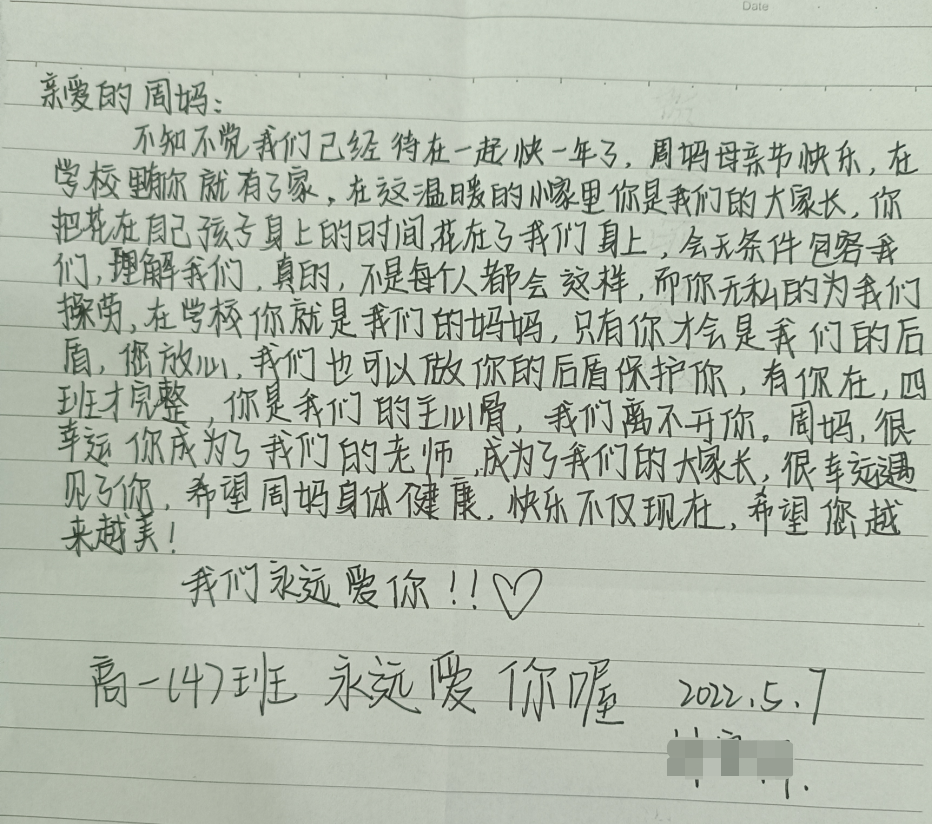 Date
亲爱的周妈：
不知不觉我们已经待在一起快一年了，周妈母亲节快乐，在
学校里有你就有了家，在这温暖的小家里你是我们的大家长，你
把花在自己孩子身上的时间花在了我们身上，会无条件包容我
们，理解我们，真的，不是每个人都会这样，而你无私的为我们
操劳，在学校你就是我们的妈妈，只有你才会是我们的后
盾，您放心，我们也可以做你的后盾保护你，有你在，四
班才完整，你是我们的主心骨，我们离不开你。周妈，很
幸运你成为了我们的老师，成为了我们的大家长，很幸运遇
见了你，希望周妈身体健康，快乐不仅现在，希望您越
来越美！
我们永远爱你！！♡
高一（4）班 永远爱你喔 2022.5.7